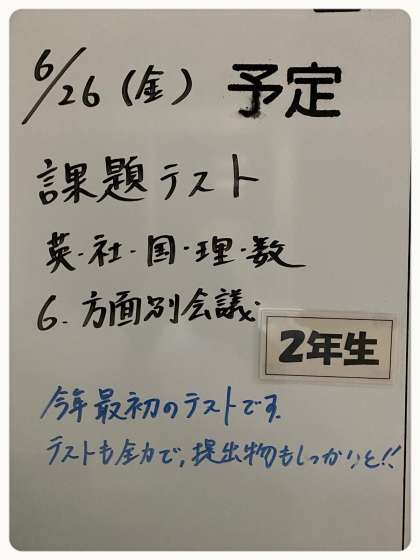 6/26(金) 予定
課題テスト
英・社・国・理・数
6. 方面別会議
2年生
今年最初のテストです
テストも全力で,提出物もしっかりと!!